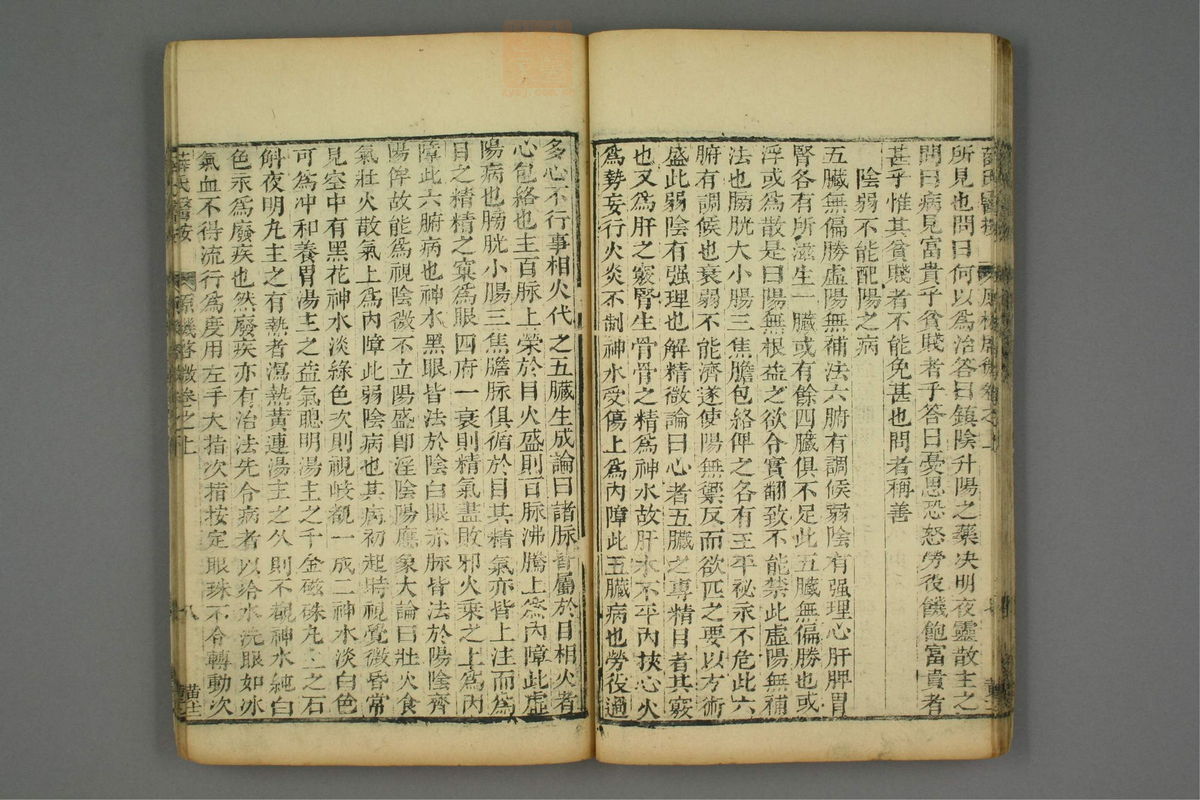 所見也問曰何以爲治答曰鎮陰升陽之藥決明夜靈散主之
問曰病見富貴乎貧賤者乎答曰憂思恐怒勞役饑飽富貴者
甚乎惟其貧賤者不能免甚也問者稱善
陰弱不能配陽之病
五臟無偏勝虛陽無補法六腑有調候弱陰有强理心肝脾胃
腎各有所滋生一臟或有餘四臟俱不足此五臟無偏勝也或
浮或爲散是曰陽無根益之欲令實翻致不能禁此虛陽無補
法也膀胱大小腸三焦膽包絡俾之各有主平祕永不危此六
腑有調候也衰弱不能濟遂使陽無禦反而欲匹之要以方術
盛此弱陰有强理也解精微論曰心者五臟之專精目者其竅
也又爲肝之竅腎生骨骨之精爲神水故肝木不平內挾心火
爲勢妄行火炎不制神水受傷上爲內障此五臟病也勞役過
多心不行事相火代之五臟生成論曰諸脉皆屬於目相火者
心包絡也主百脉上榮於目火盛則百脉沸騰上爲內障此虛
陽病也膀胱小腸三焦膽脉俱循於目其精氣亦皆上注而爲
目之精精之窠爲眼四府一衰則精氣盡敗邪火乘之上爲內
障此六腑病也神水黑眼皆法於陰白眼赤脉皆法於陽陰齊
陽侔故能爲視陰微不立陽盛卽淫陰陽應象大論曰壯火食
氣壯火散氣上爲內障此弱陰病也其病初起時視覺微昏常
見空中有黑花神水淡綠色次則視岐覩一成二神水淡白色
可爲冲和養胃湯主之益氣聰明湯主之千金磁硃丸主之石
斛夜明丸主之有熱者瀉熱黃連湯主之久則不覩神水純白
色永爲廢疾也然廢疾亦有治法先令病者以給水洗眼如冰
氣血不得流行爲度用左手大指次指按定眼珠不令轉動次
薛氏醫按
原機啓微卷之上
八